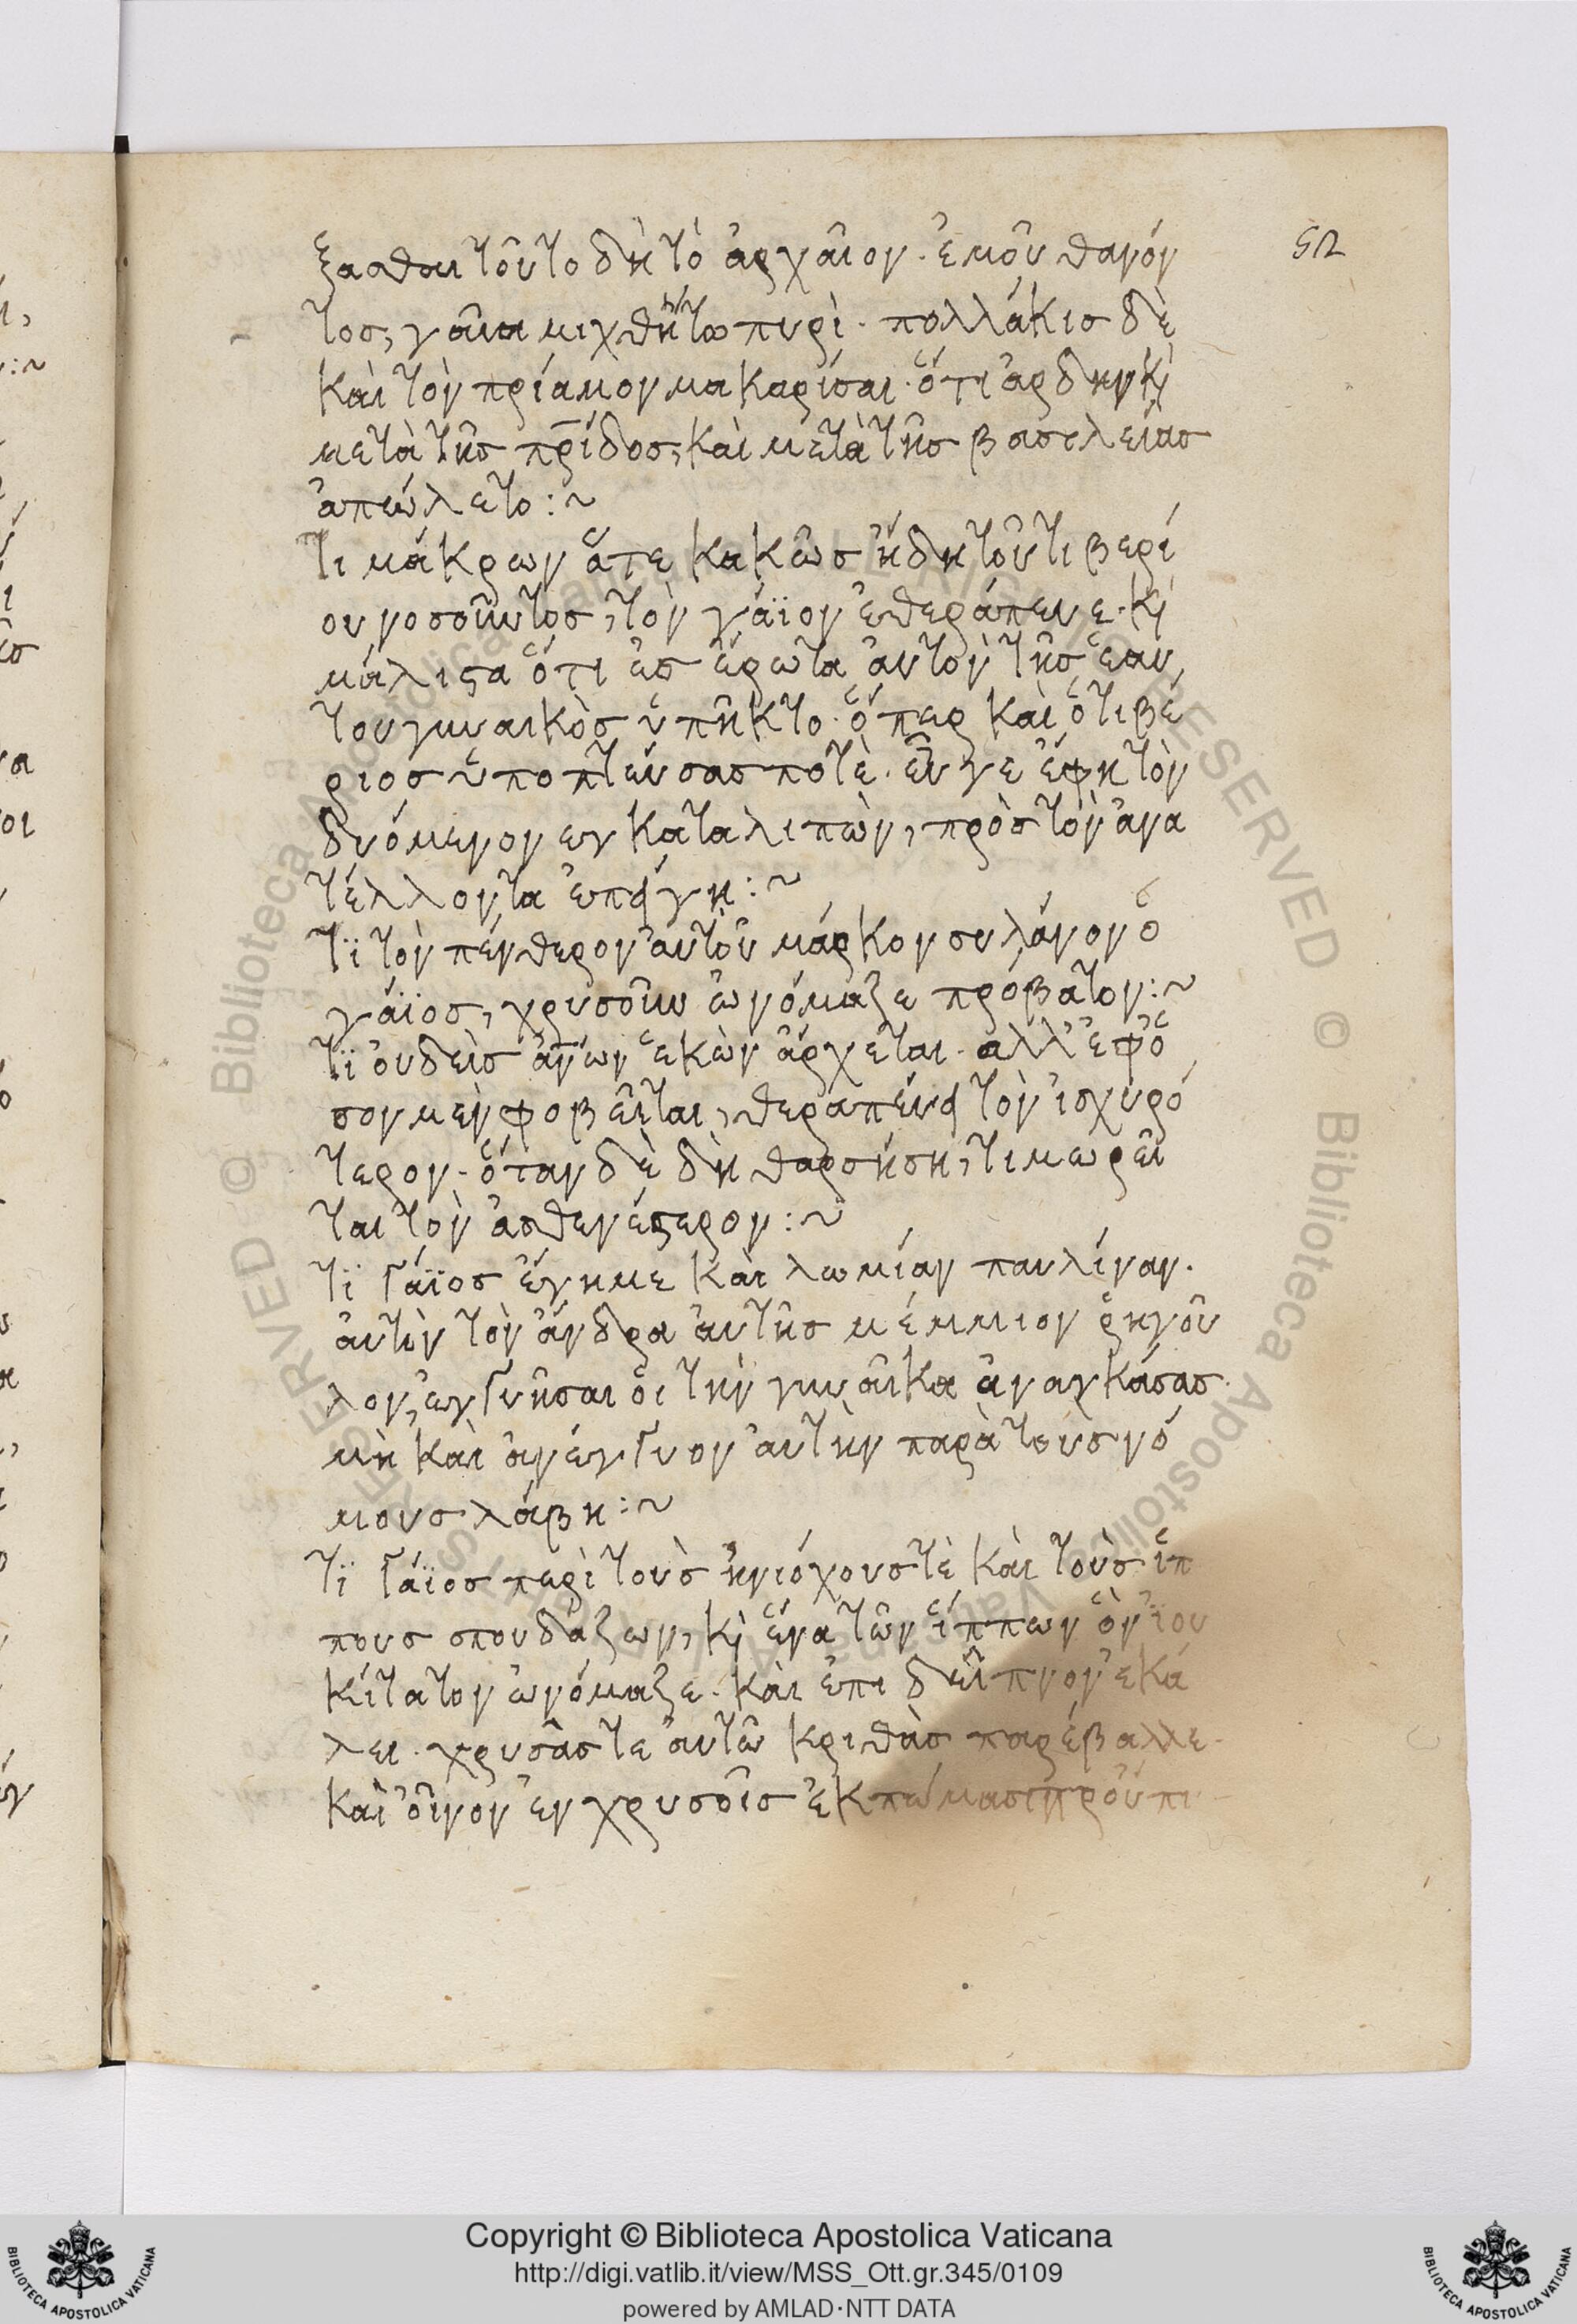 52
ξασθαι τοῦτο δὴ τὸ ἀρχαῖον· ἐμοῦ θανόν
τος, γαῖα μιχθήτω πυρί· πολλάκις δὲ
καὶ τὸν πρίαμον μακαρίσαι· ὅτι ἄρδην κὶ
μετὰ τῆς πρίδος, καὶ μετὰ τῆς βασιλείας
ἀπώλετο:~
Τι μάκρων ἅτε κακῶς ἤδη τοῦ τιβερί
ου νοσοῦντος, τὸν γάϊον ἐθεράπευε· κὶ
μάλιστα ὅτι ἐς ἔρωτα αὐτὸν τῆς ἑαυ
του γυναικὸς ὑπῆκτο· ὅπερ καὶ ὁ τιβέ
ριος ὑποπτεύσας ποτὲ· εὖ γε ἔφη τὸν
δυόμενον εγκαταλιπὼν, πρὸς τὸν ἀνα
τέλλοντα ἐπείγη:~
Τϊ τὸν πένθερον αὐτοῦ μάρκον συλάνον ὁ
γάϊος, χρυσοῦν ὠνόμαζε πρόβατον:~
Τϊ ὀυδεὶς ἀνων ἑκὼν ἄρχεται· αλλ' ἐφ' ὅ
σον μὲν φοβεῖται, θεραπεύει τὸν ἰσχυρό
τερον· ὅταν δὲ δὴ θαρσήση, τιμωρεῖ
ται τὸν ἀσθενέστερον:~
Τϊ Γάϊος ἔγημε καὶ λωμίαν παυλίναν·
ἀυτὸν τὸν ἄνδρα ἀυτῆς μέμμιον ῥηγοῦ
λον, ἐγγυῆσαι ὁι τὴν γυναῖκα ἀναγκάσας·
μὴ καὶ ἀνέγγυον ἀυτὴν παρὰ τοὺς νό
μους λάβη:~
Τϊ Γάϊος περὶ τοὺς ἡνιόχους τὲ καὶ τοὺς ἵπ
πους σπουδάζων, κὶ ἕνα τῶν ἵππων ὃν ϊου
κίτατον ὠνόμαζε· καὶ ἐπι δεῖπνον ἐκά
λει· χρυσᾶς τε ἀυτῶ κριθὰς παρέβαλλε·
καὶ ὀῖνον ἐν χρυσοῖς ἐκπώμασι προύπι
Copyright © Biblioteca Apostolica Vaticana
http://digi.vatlib.it/view/MSS_Ott.gr.345/0109
powered by AMLAD·NTT DATA